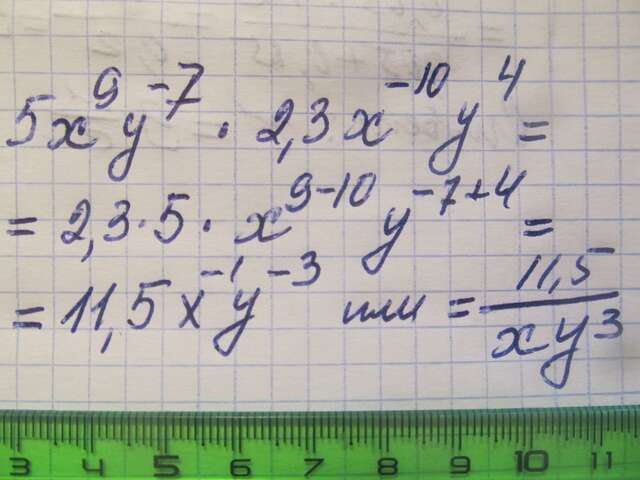 5x⁹y⁻⁷ · 2,3x⁻¹⁰y⁴ =
= 2,3 · 5 · x⁹⁻¹⁰ y⁻⁷⁺⁴ =
= 11,5 x⁻¹y⁻³ или = 11,5/xy³
3 4 5 6 7 8 9 10 11